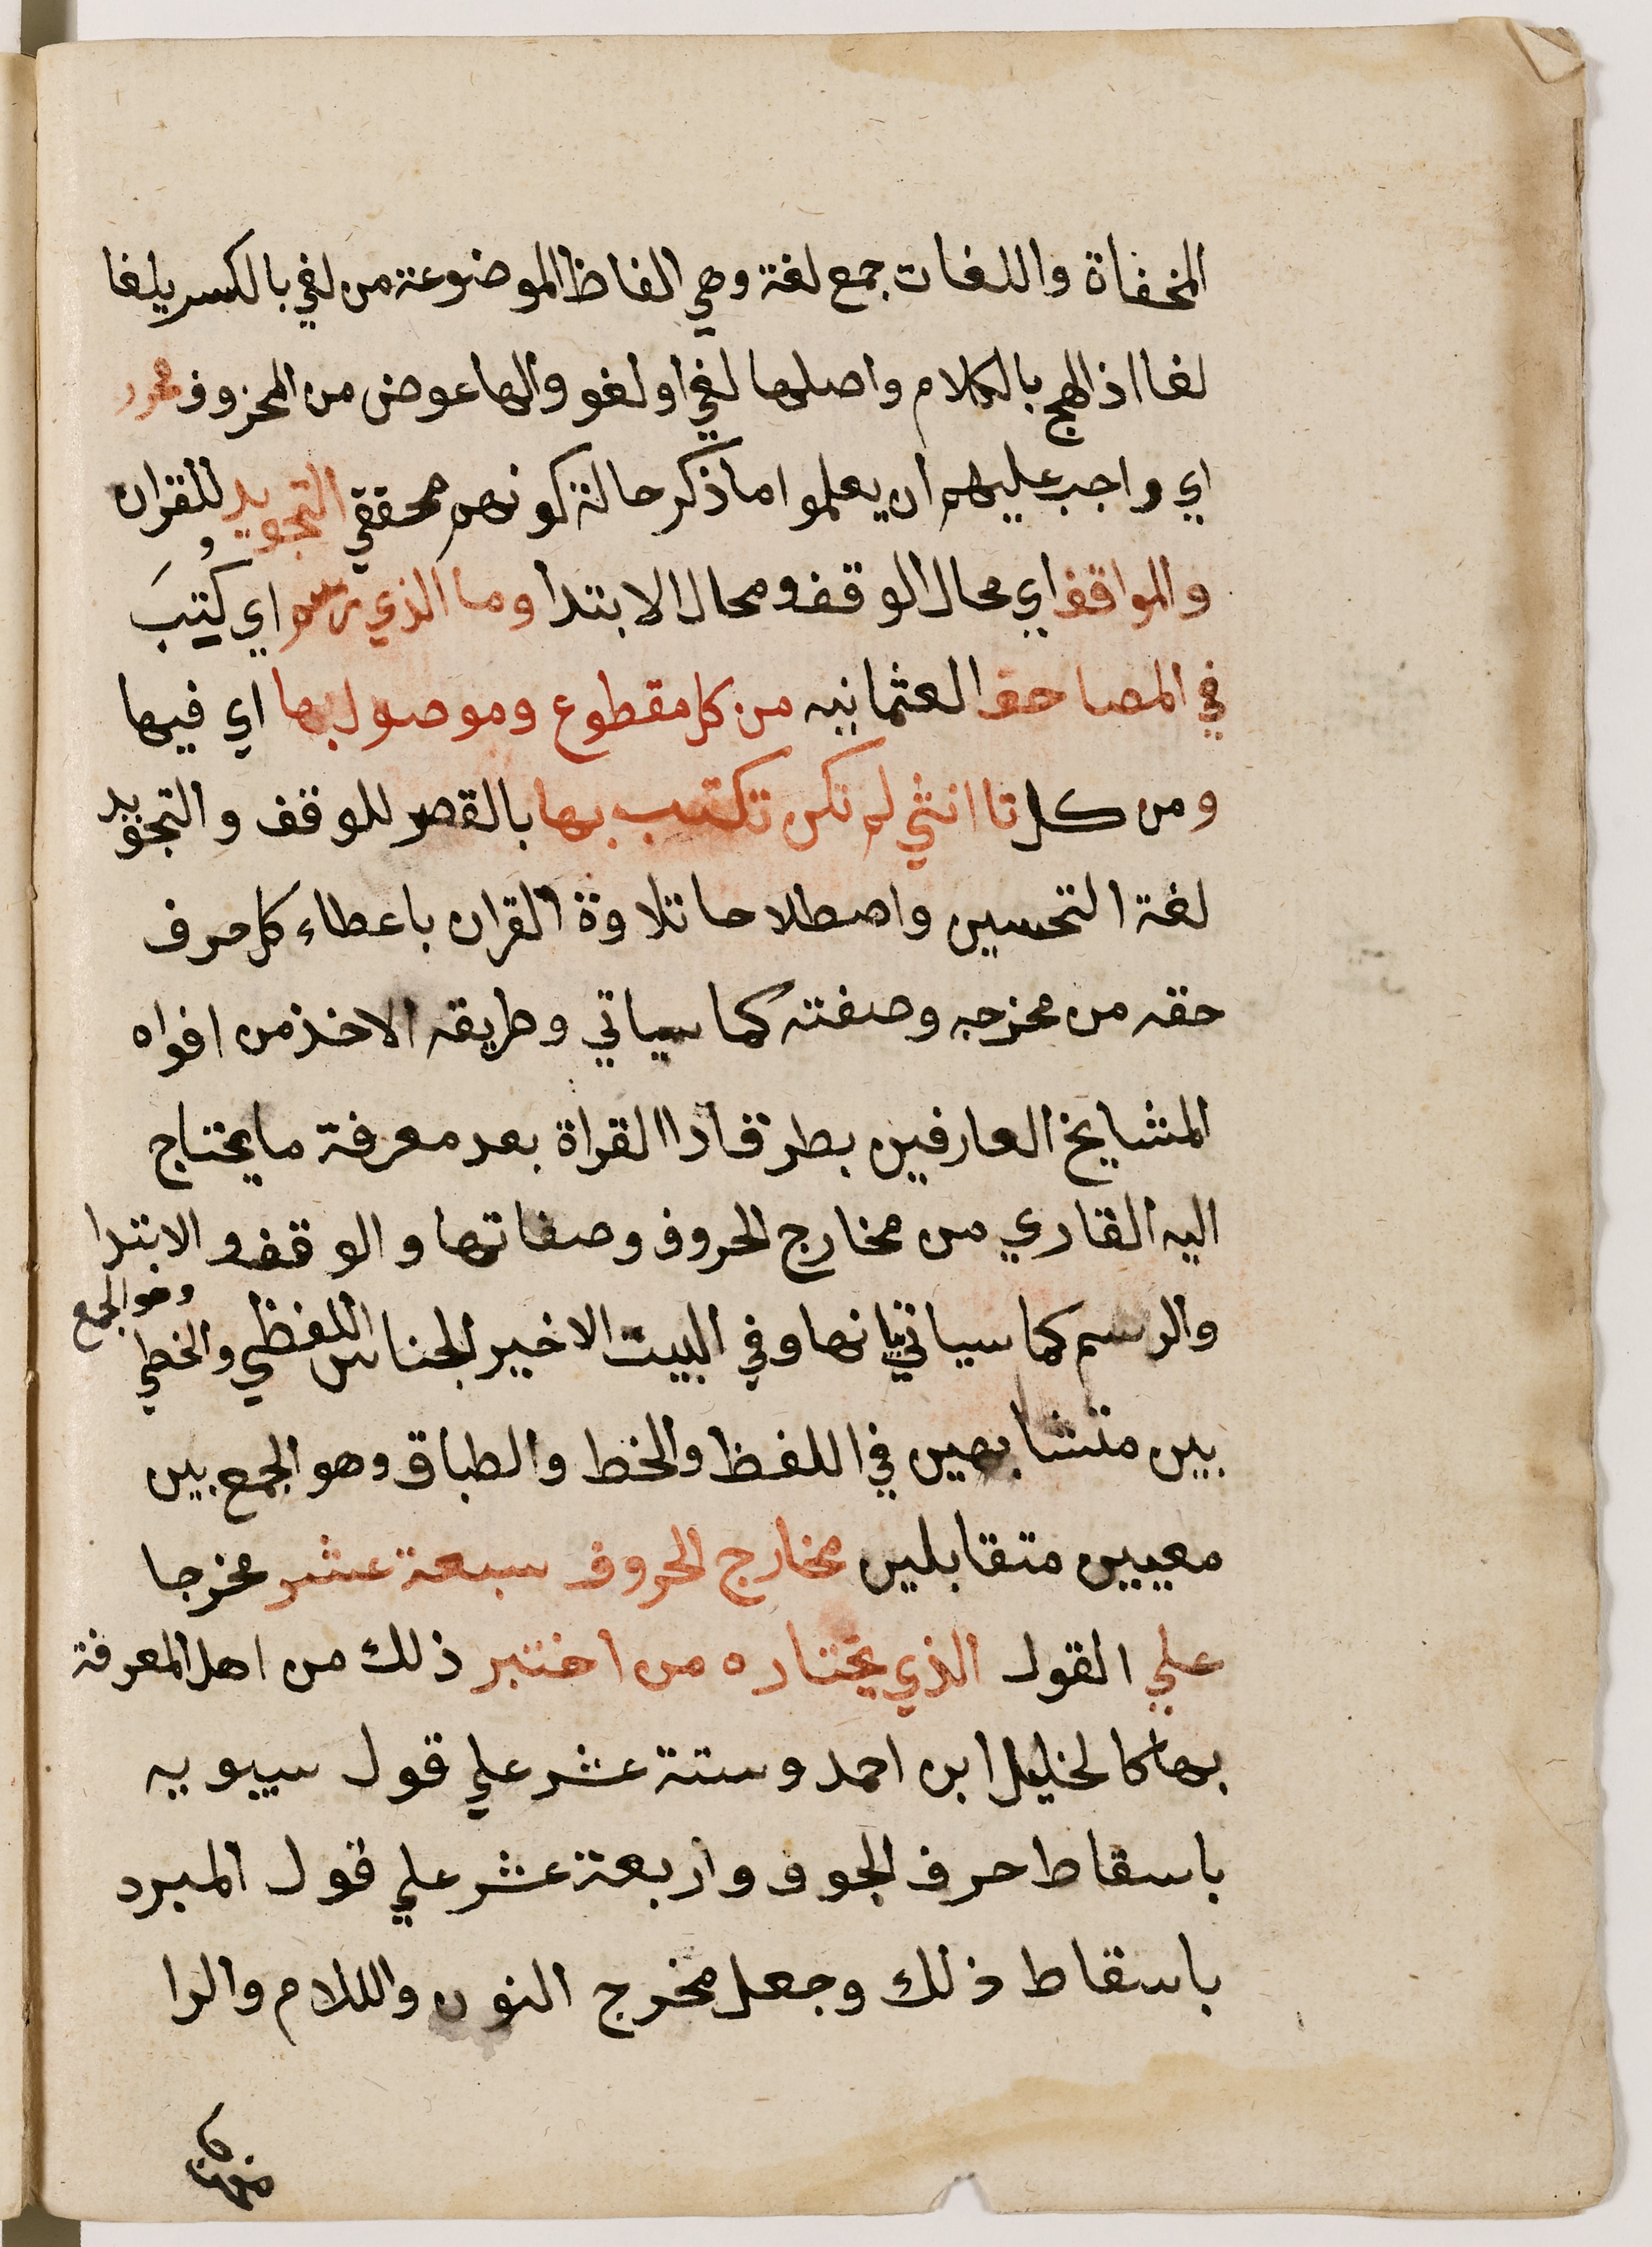 المخفاة واللغات جمع لغة وهي الفاظ الموضوعة من لغي بالكسر يلغا
لغا اذا لهج بالكلام واصلها لغي او لغو والها عوض من المحزوف محرر
اي واجب عليهم ان يعلموا ما ذكر حالة كونهم محققي التجويد للقران
والمواقف اي محال الوقف ومحال الابتدا وما الذي رسم اي كُتِبَ
في المصاحف العثمانيه من كل مقطوع وموصول بها اي فيها
ومن كل تا انثي لم تكن تكتب بها بالقصر للوقف والتجويد
لغة التحسين واصطلاحا تلاوة القران باعطاء كل حرف
حقه من مخرجه وصفته كما سياتي وطريقه الاخذ من افواه
المشايخ العارفين بطرق ادا القراة بعد معرفة ما يحتاج
اليه القاري من مخارج الحروف وصفاتها والوقف والابتدا
والرسم كما سياتي بيانها وفي البيت الاخير الجناس اللفظي والخطي وهو الجمع
بين متشابهين في اللفظ والخط والطباق وهو الجمع بين
معيين متقابلين مخارج الحروف سبعة عشر مخرجا
علي القول الذي يختاره من اختبر ذلك من اهل المعرفة
بها كالخليل ابن احمد وستة عشر علي قول سيبويه
باسقاط حرف الجوف واربعة عشر علي قول المبرد
باسقاط ذلك وجعل مخرج النون واللام والرا